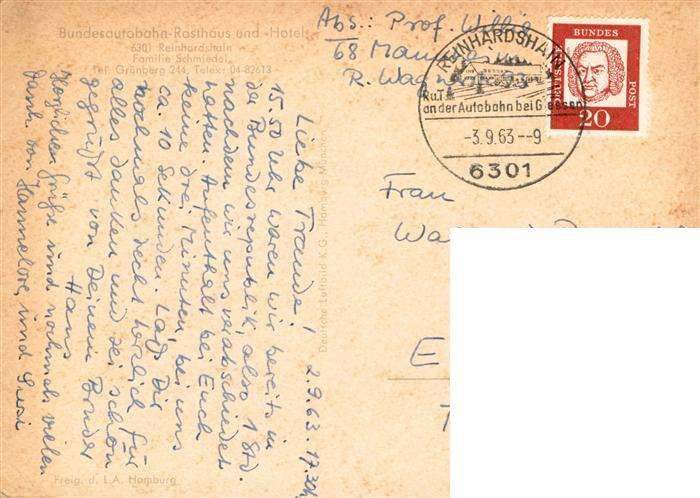 Bundesautobahn-Rasthaus und -Hotel
6301 Reinhardshain
Familie Schmiedel
Tel. Grünberg 244, Telex: 04-82613
Abs.: Prof. Willi
68 Mann
R. Wagn
REINHARDSHAIN
R.u.T.
an der Autobahn bei Giessen
-3.9.63--9
6301
DEUTSCHE
BUNDES
POST
20
2.9.63. 17.30h
Liebe Traude!
15.50 Uhr waren wir bereits in
der Bundesrepublik, also 1 Std.
nachdem wir uns verabschiedet
hatten. Aufenthalt bei Euch
keine drei Minuten, bei uns
ca. 10 Sekunden. Laß Dir
nochmals recht herzlich für
alles danken und sei schön
gegrüßt von Deinem Bruder
Hans
Herzlichen Grüße und nochmals vielen
Dank von Hannelore und Susi
Deutsche Luftbild K.G., Hamburg
Freig. d. L.A. Hamburg
Frau
Wa
E
T